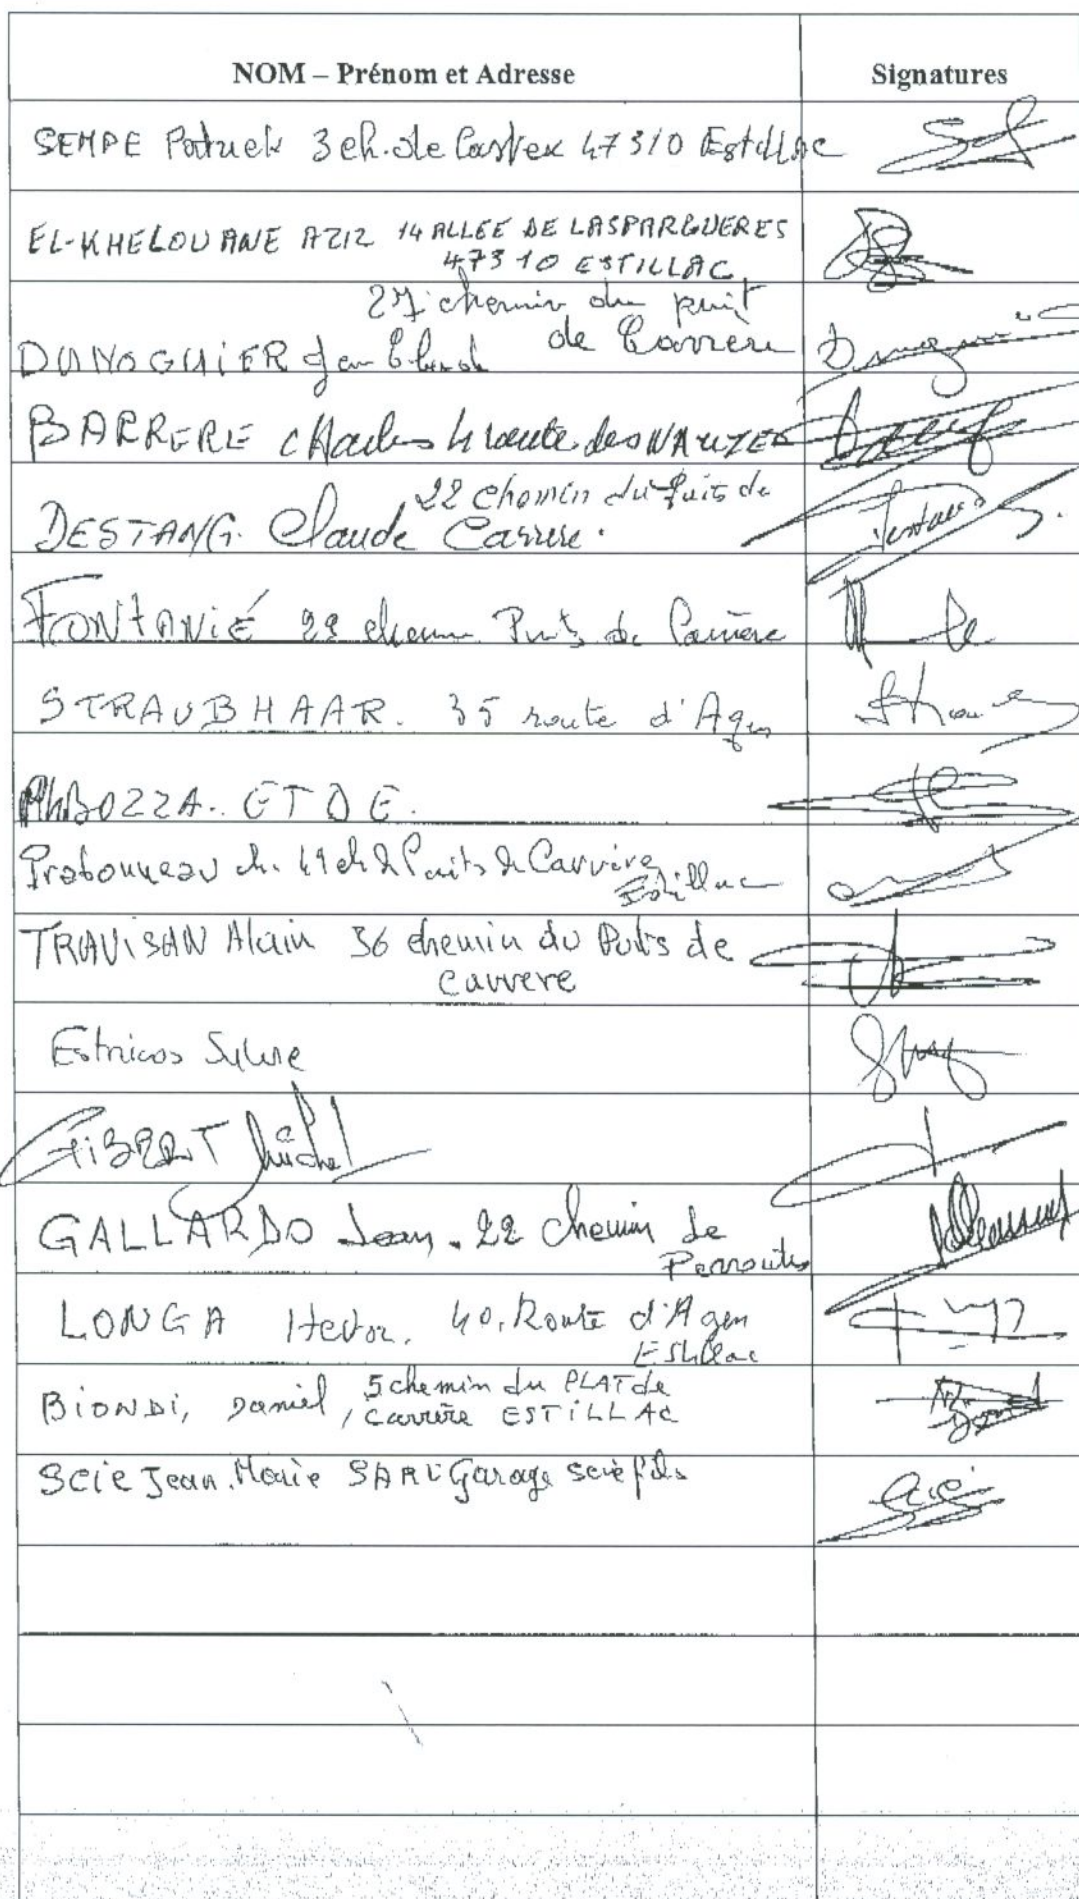 NOM – Prénom et Adresse Signatures
SEMPE Patrick 3 ch. de Castex 47310 Estillac
EL-KHELOUANE AZIZ 14 ALLEE DE LASPARGUERES
47310 ESTILLAC
27 chemin du puit
de Carrère
DUNOGUIER Jean Claude
BARRERE Charles 4 route des NAUZES
22 chemin du Puits de
DESTANG. Claude Carrere.
FONTANIÉ 29 chemin Puits de Carrière
STRAUBHAAR. 35 route d'Agen
BOZZA. ETDE.
Prabonneau ch. 49 ch d Puits d Carrère
Estillac
TRAVISAN Alain 36 chemin du Puits de
Carrere
Estricos Sylvie
GIBERT Michel
GALLARDO Jean. 22 chemin de
Perroutes
LONGA Hector. 40, Route d'Agen
Estillac
5 chemin du PLAT de
BiONDi, Daniel, Carrère ESTILLAC
SCIE Jean.Marie SARL Garage Scié fils